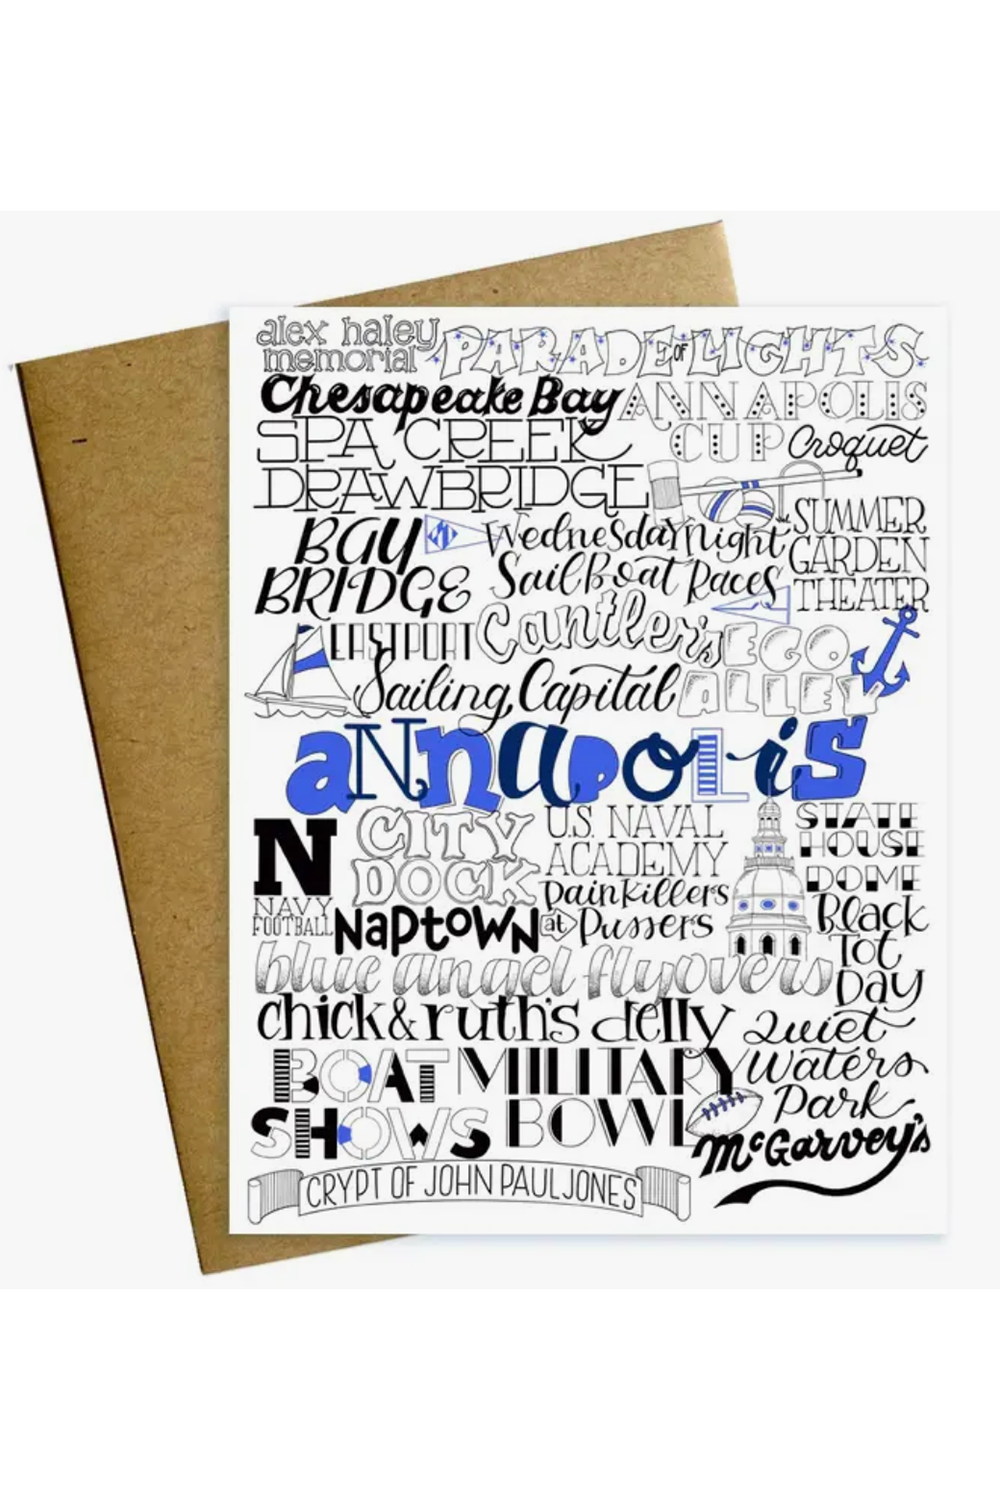 alex haley
memorial
PARADE OF LIGHTS
Chesapeake Bay
ANNAPOLIS
CUP Croquet
SPA CREEK
DRAWBRIDGE
BAY
BRIDGE
Wednesday Night
SailBoat Races
SUMMER
GARDEN
THEATER
EASTPORT
Cantler's
EGO
ALLEY
Sailing Capital
annapolis
N
NAVY
FOOTBALL
CITY
DOCK
U.S. NAVAL
ACADEMY
painkillers
at Pussers
STATE
HOUSE
DOME
Naptown
Black
Tot
Day
blue angel flyovers
chick & ruth's delly
Quiet
Waters
Park
BOAT
SHOWS
MILITARY
BOWL
McGarvey's
CRYPT OF JOHN PAUL JONES